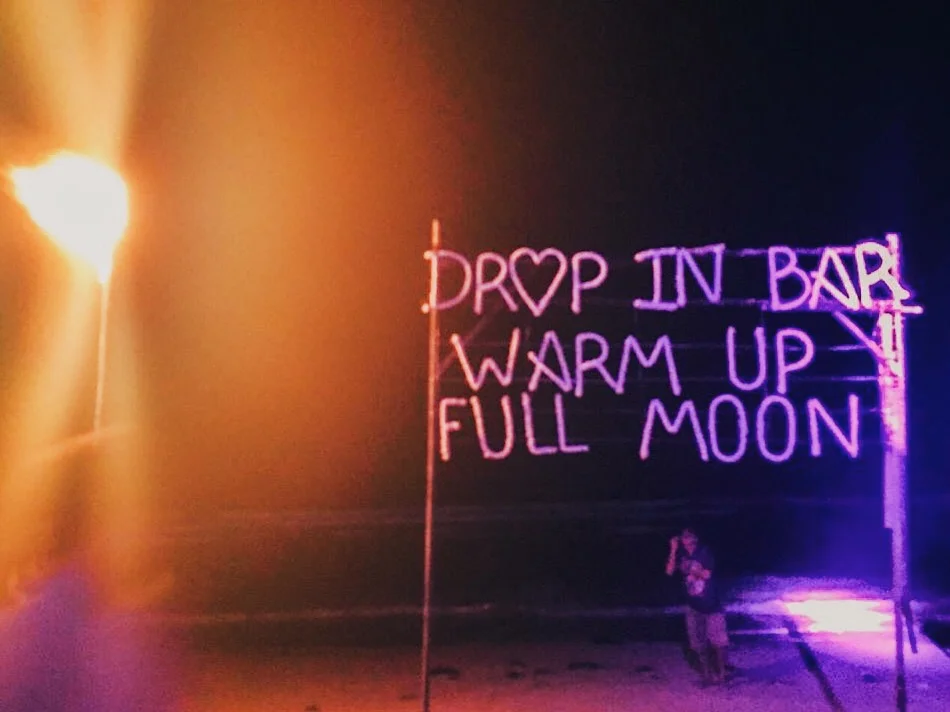 DR♡P IN BAR
WARM UP
FULL MOON